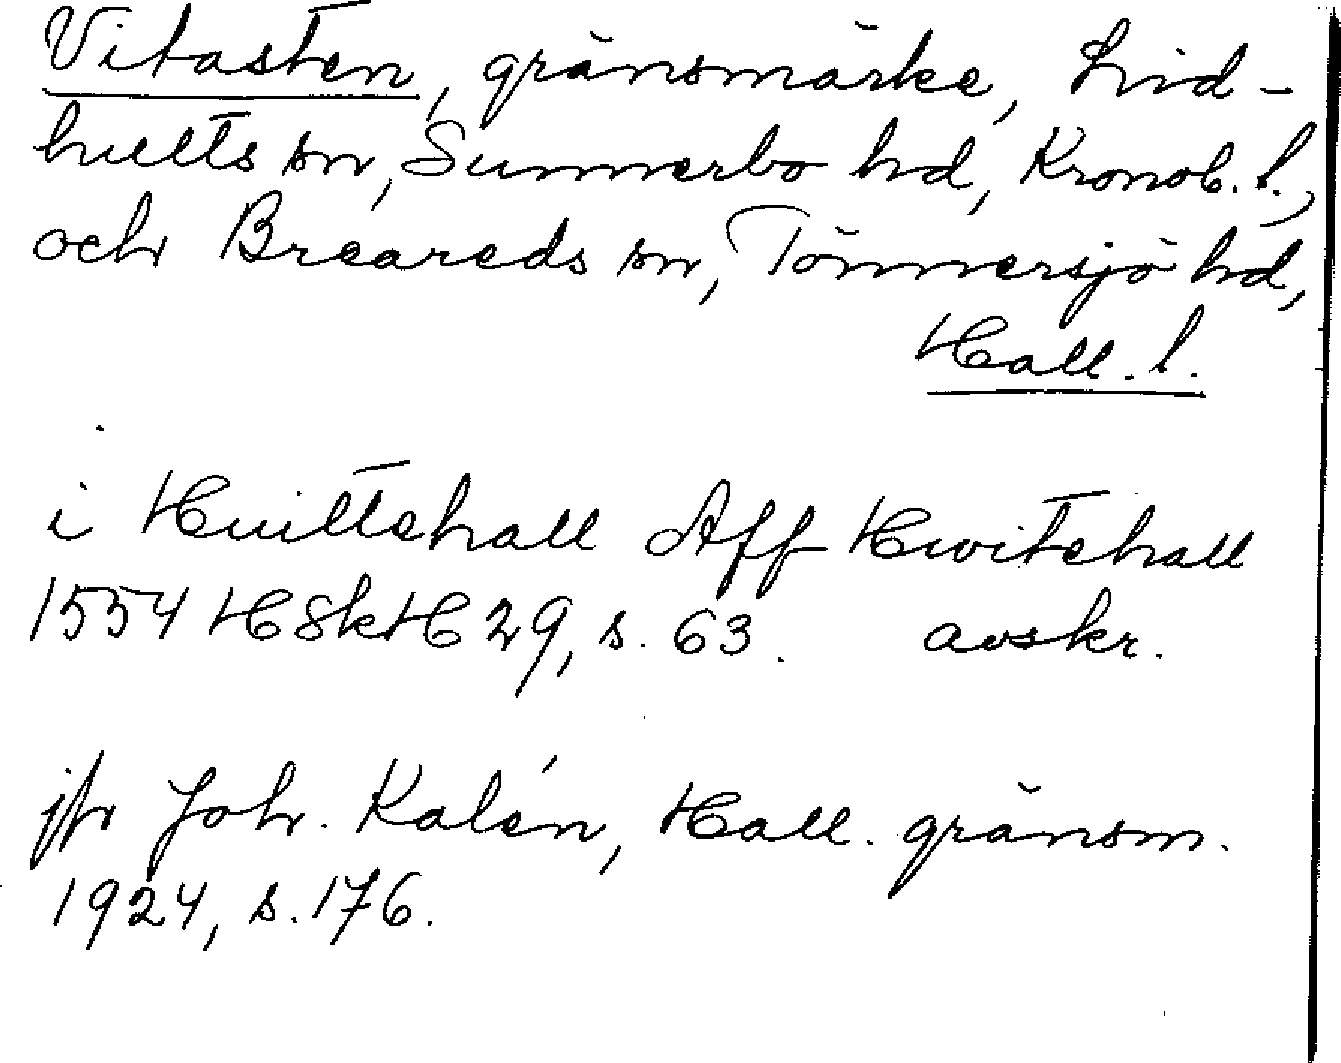 Vitasten, gränsmärke, Lid-
hults sn, Sunnerbo hd, Kronob. l.,
och Breareds sn, Tönnersjö hd,
Hall. l.
i Huittehall Aff Hwitehall
1554 HSkH 29, s. 63. avskr.
jfr Joh. Kalén, Hall. gränsm.
1924, s. 176.